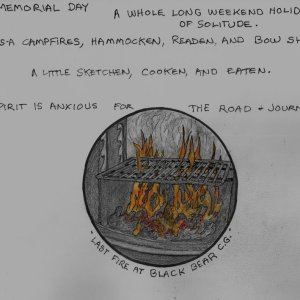 MEMORIAL DAY A WHOLE LONG WEEKEND HOLID
OF SOLITUDE.
S-A CAMPFIRES, HAMMOCKEN, READEN, AND BOW SH
A LITTLE SKETCHEN, COOKEN, AND EATEN.
PIRIT IS ANXIOUS FOR THE ROAD + JOURN
- LAST FIRE AT BLACK BEAR C.G. -